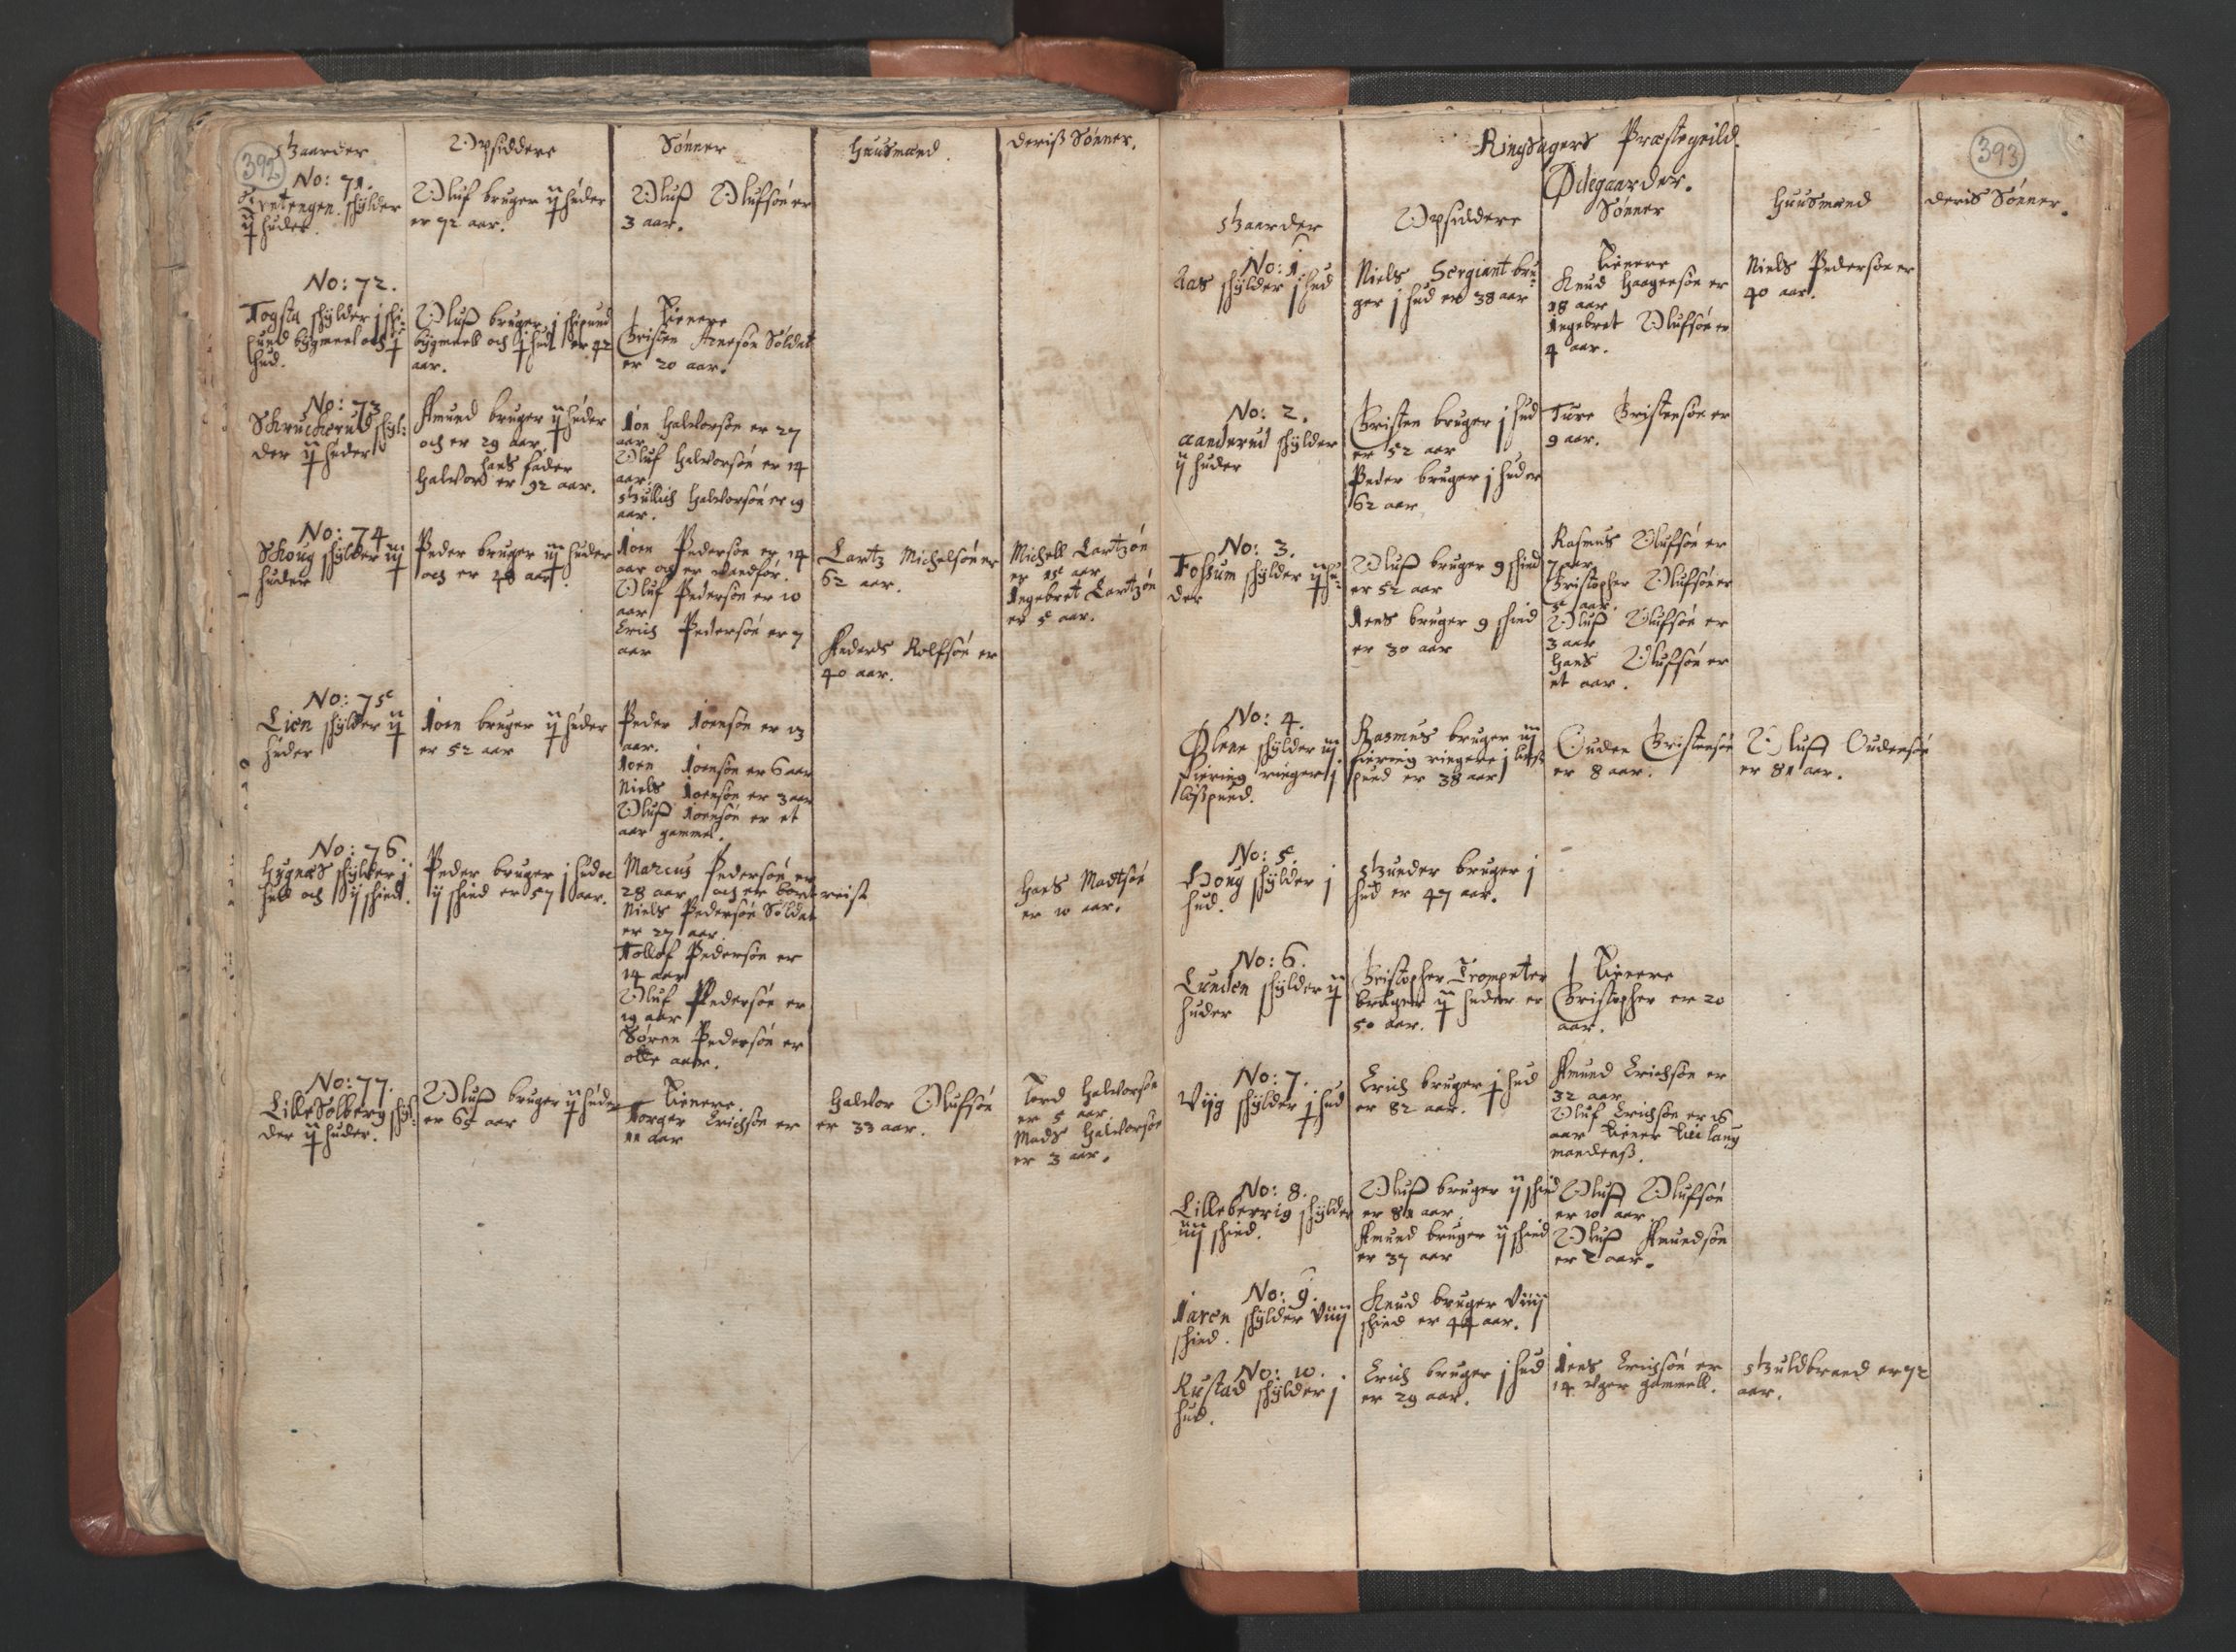 392
Gaarder
Opsiddere
Sønner
Huusmend.
deriß Sønner.
No: 71.
schylder
ij huder.
Oluf bruger ij huder
er 72 aar.
Oluff Olufsøn er
3 aar.
No: 72.
Togsta schylder j schi-
pund bygmeel och j
hud.
Oluff bruger j schipund
bygmeel och j hud er 42
aar.
Tienere
Christen Arnesøn Soldat
er 20 aar.
No: 73
Schrucherud schyl-
der ij huder
Amund bruger ij huder
och er 29 aar
hans fader
Halvor er 92 aar.
Jon Halvorsøn er 27
aar
Oluf Halvorsøn er 14
aar.
Gullich Halvorsøn er 19
aar.
No: 74
Schoug schylder iij
huder
Peder bruger iij huder
och er aar.
Joen Pedersøn er 14
aar och er vandfør.
Oluf Pedersøn er 10
aar
Erich Pedersøn er 7
aar
Lartz Michelsøn er
62 aar.
Anders Rolfsøn er
40 aar.
Michell Lartzøn
er 15 aar
Ingebret Lartzøn
er 5 aar.
No: 75
Lien schylder ij
huder
Joen bruger ij huder
er 52 aar
Peder Joensøn er 13
aar.
Joen Joensøn er 6 aar
Niels Joensøn er 3 aar
Oluff Joensøn er et
aar gammel.
No: 76
Hygnæs schylder j
hud och ij schind.
Peder bruger j hud oc
ij schind er 57 aar.
Marcus Pedersøn er
28 aar och er bortreist
Niels Pedersøn Soldat
er 27 aar.
Tollof Pedersøn er
14 aar
Oluf Pedersøn er
19 aar
Søren Pedersøn er
otte aar.
Hans Madtsøn
er 10 aar.
No: 77.
Lille Solberg schyl-
der ij huder.
Oluff bruger ij huder
er 65 aar
Tienere.
Torger Erichsøn er
11 aar
Halvor Olufsøn
er 33 aar.
Tord Halvorsøn
er 5 aar
Mads Halvorsøn
er 3 aar.
393
Ringsagers Præstegeild.
Ødegaarder.
Gaarder
Opsiddere
Sønner
Huusmend
deris Sønner.
No: 1
Aas schylder j hud
Niels Sergiant bru-
ger j hud er 38 aar
Tienere
Knud Haagensøn er
18 aar
Ingebret Olufsøn er
4 aar.
Niels Pedersøn er
40 aar.
No: 2.
Aanderud schylder
ij huder
Christen bruger j hud
er 52 aar
Peder bruger j hud er
62 aar
Ture Christensøn er
9 aar.
No: 3.
Fossum schylder ij hu-
der
Oluff bruger 9 schind
er 52 aar
Jens bruger 9 schind
er 30 aar
Rasmus Olufsøn er
7 aar.
Christopher Olufsøn er
5 aar.
Oluff Olufsøn er
3 aar
Hans Olufsøn er
et aar.
No: 4.
Ølene schylder iij
fiering j
lißpund.
Rasmus bruger iij
fiering j liß-
pund er 38 aar
Ouden Christensøn
er 8 aar.
Oluff Oudensøn
er 81 aar.
No: 5.
Houg schylder j
hud.
Gunder bruger j
hud er 47 aar.
No: 6.
Lunden schylder ij
huder
Christopher Trompeter
bruger ij huder er
50 aar.
Tienere
Christopher er 20
aar.
No: 7.
Viig schylder j hud
Erich bruger j hud
er 82 aar.
Amund Erichsøn er
32 aar
Oluf Erichsøn er 16
aar tiener til laug
mandens.
No: 8.
Lilleberrig schylder
iiij schind.
Oluff bruger ij schind
er 81 aar
Amund bruger ij schind
er 37 aar
Oluff Olufsøn
er 10 aar
Oluff Amundsøn
er 2 aar.
No: 9.
Jaren schylder viiij
schind.
Knud bruger viiij
schind er 44 aar.
No: 10.
Rustad schylder j
hud.
Erich bruger j hud
er 29 aar.
Jens Erichsøn er
14 uger gammell.
Guldbrand er 72
aar.